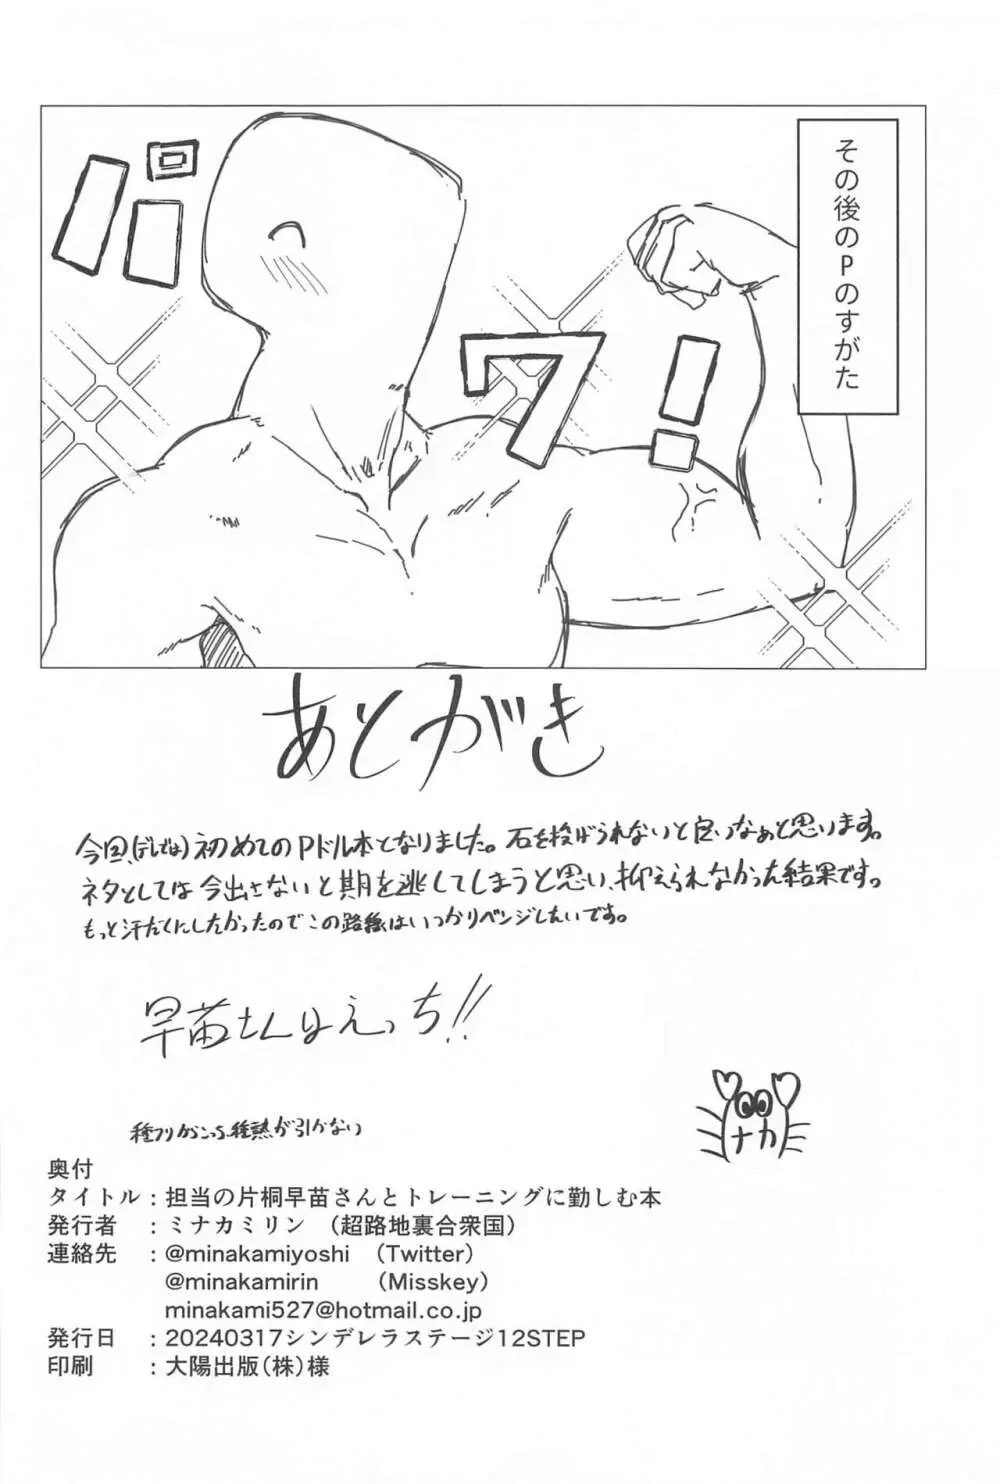 その後のPのすがた
パワー!
あとがき
今回、(デレでは)初めてのPドル本となりました。石を投げられないと良いなぁと思います。
ネタとしては今出さないと期を逃してしまうと思い、抑えられなかった結果です。
もっと汗だくにしたかったのでこの路線はいつかリベンジしたいです。
早苗さんはえっち!!
ナカ
奥付
タイトル:担当の片桐早苗さんとトレーニングに勤しむ本
発行者:ミナカミリン (超路地裏合衆国)
連絡先:@minakamiyoshi (Twitter)
@minakamirin (Misskey)
minakami527@hotmail.co.jp
発行日:20240317シンデレラステージ12STEP
印刷:大陽出版(株)様